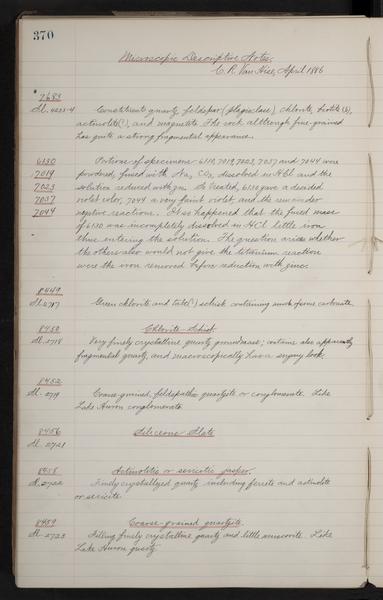 370
Microscopic Descriptive Notes.
C. R. Van Hise, April 1886
7683
Sl. 4233-4 Constituents quartz, feldspar (plagioclase), chlorite, biotite(s),
actinolite(?), and magnetite. The rock although fine-grained
has quite a strong fragmental appearance.
6130 Portions of specimens 6130, 7019, 7023, 7037 and 7044 were
7019 powdered, fused with Na2 CO3, dissolved in HCl and the
7023 solution reduced with zn. So treated, 6130 gave a decided
7037 violet color, 7044 a very faint violet, and the remainder
7044 negative reactions. It so happened that the fused mass
of 6130 was incompletely dissolved in HCl little iron
thus entering the solution. The question arises whether
the others also would not give the titanium reaction
were the iron removed before reduction with zinc.
8449
Sl. 2717 Green chlorite and talc(?) schist containing some ferro carbonate.
8450 Chlorite Schist
Sl. 2718 Very finely crystalline quartz groundmass; contains also apparently
fragmental quartz, and macroscopically has a sugary look.
8452
Sl. 2719 Coarse-grained, feldspathic quartzite or conglomerate. Like
Lake Huron conglomerate.
8456 Siliceous Slate
Sl. 2721
8458 Actinolitic or sericitic jasper.
Sl. 2722 Finely crystallized quartz including ferrite and actinolite
or sericite.
8459 Coarse-grained quartzite.
Sl. 2723 Filling finely crystalline quartz and little muscovite. Like
Lake Huron quartz.